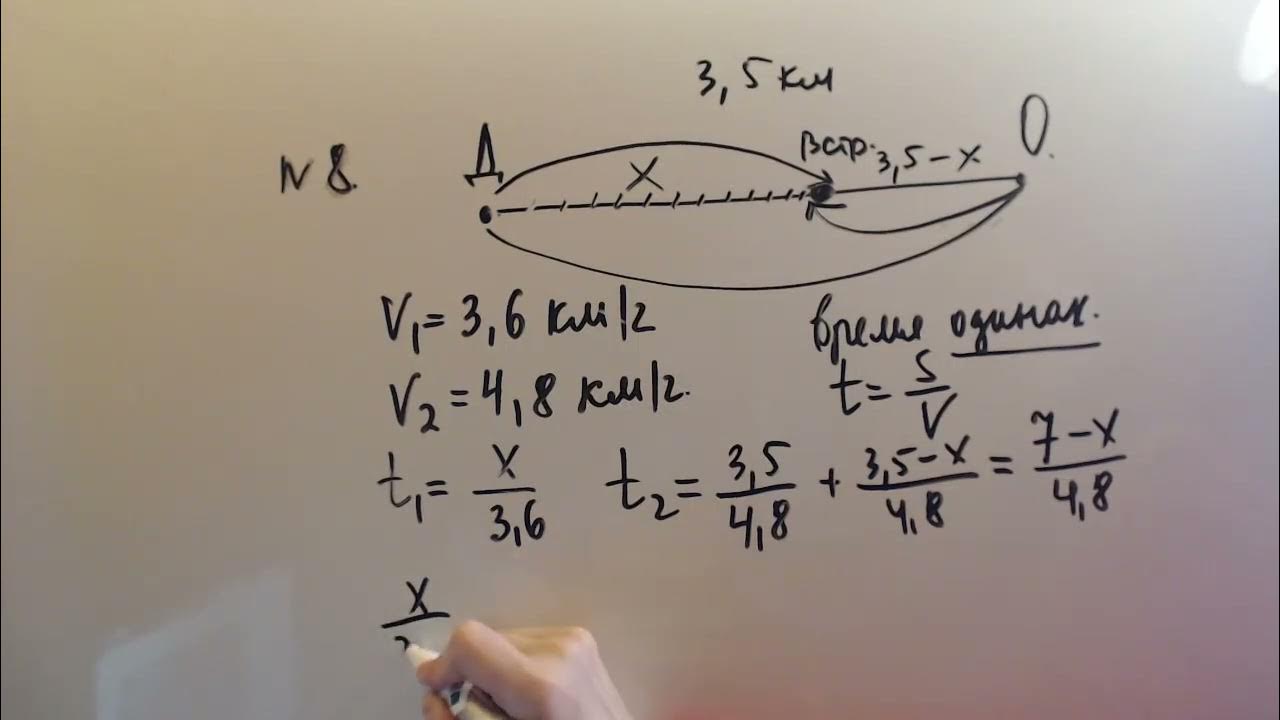 3,5 км
N 8.
Д
X
Встр.
3,5-x
О.
V₁= 3,6 км/г
V₂ = 4,8 км/г.
время одинак.
t = S/V
t₁ = x/3,6
t₂ = 3,5/4,8 + 3,5-x/4,8 = 7-x/4,8
x